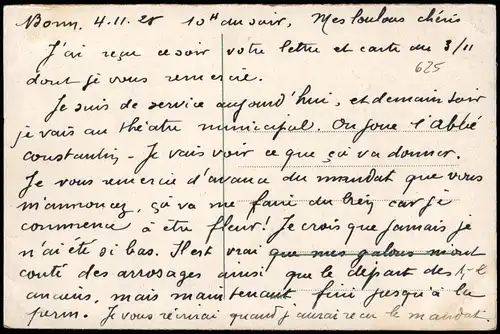 Bonn, 4.11.28 10H du soir, Mes loulous chéris
J'ai reçu ce soir votre lettre et carte du 3/11
dont je vous remercie.
625
Je suis de service aujourd'hui, et demain soir
je vais au théâtre municipal. On joue l'Abbé
Constantin - Je vais voir ce que ça va donner.
Je vous remercie d'avance du mandat que vous
m'annoncez, ça va me faire du bien car je
commence à être fleur! Je crois que jamais je
n'ai été si bas. Il est vrai que mes galons m'ont
coûté des arrosages ainsi que le départ des
anciens, mais maintenant fini jusqu'à la
perm. Je vous récrirai quand j'aurai reçu le mandat.